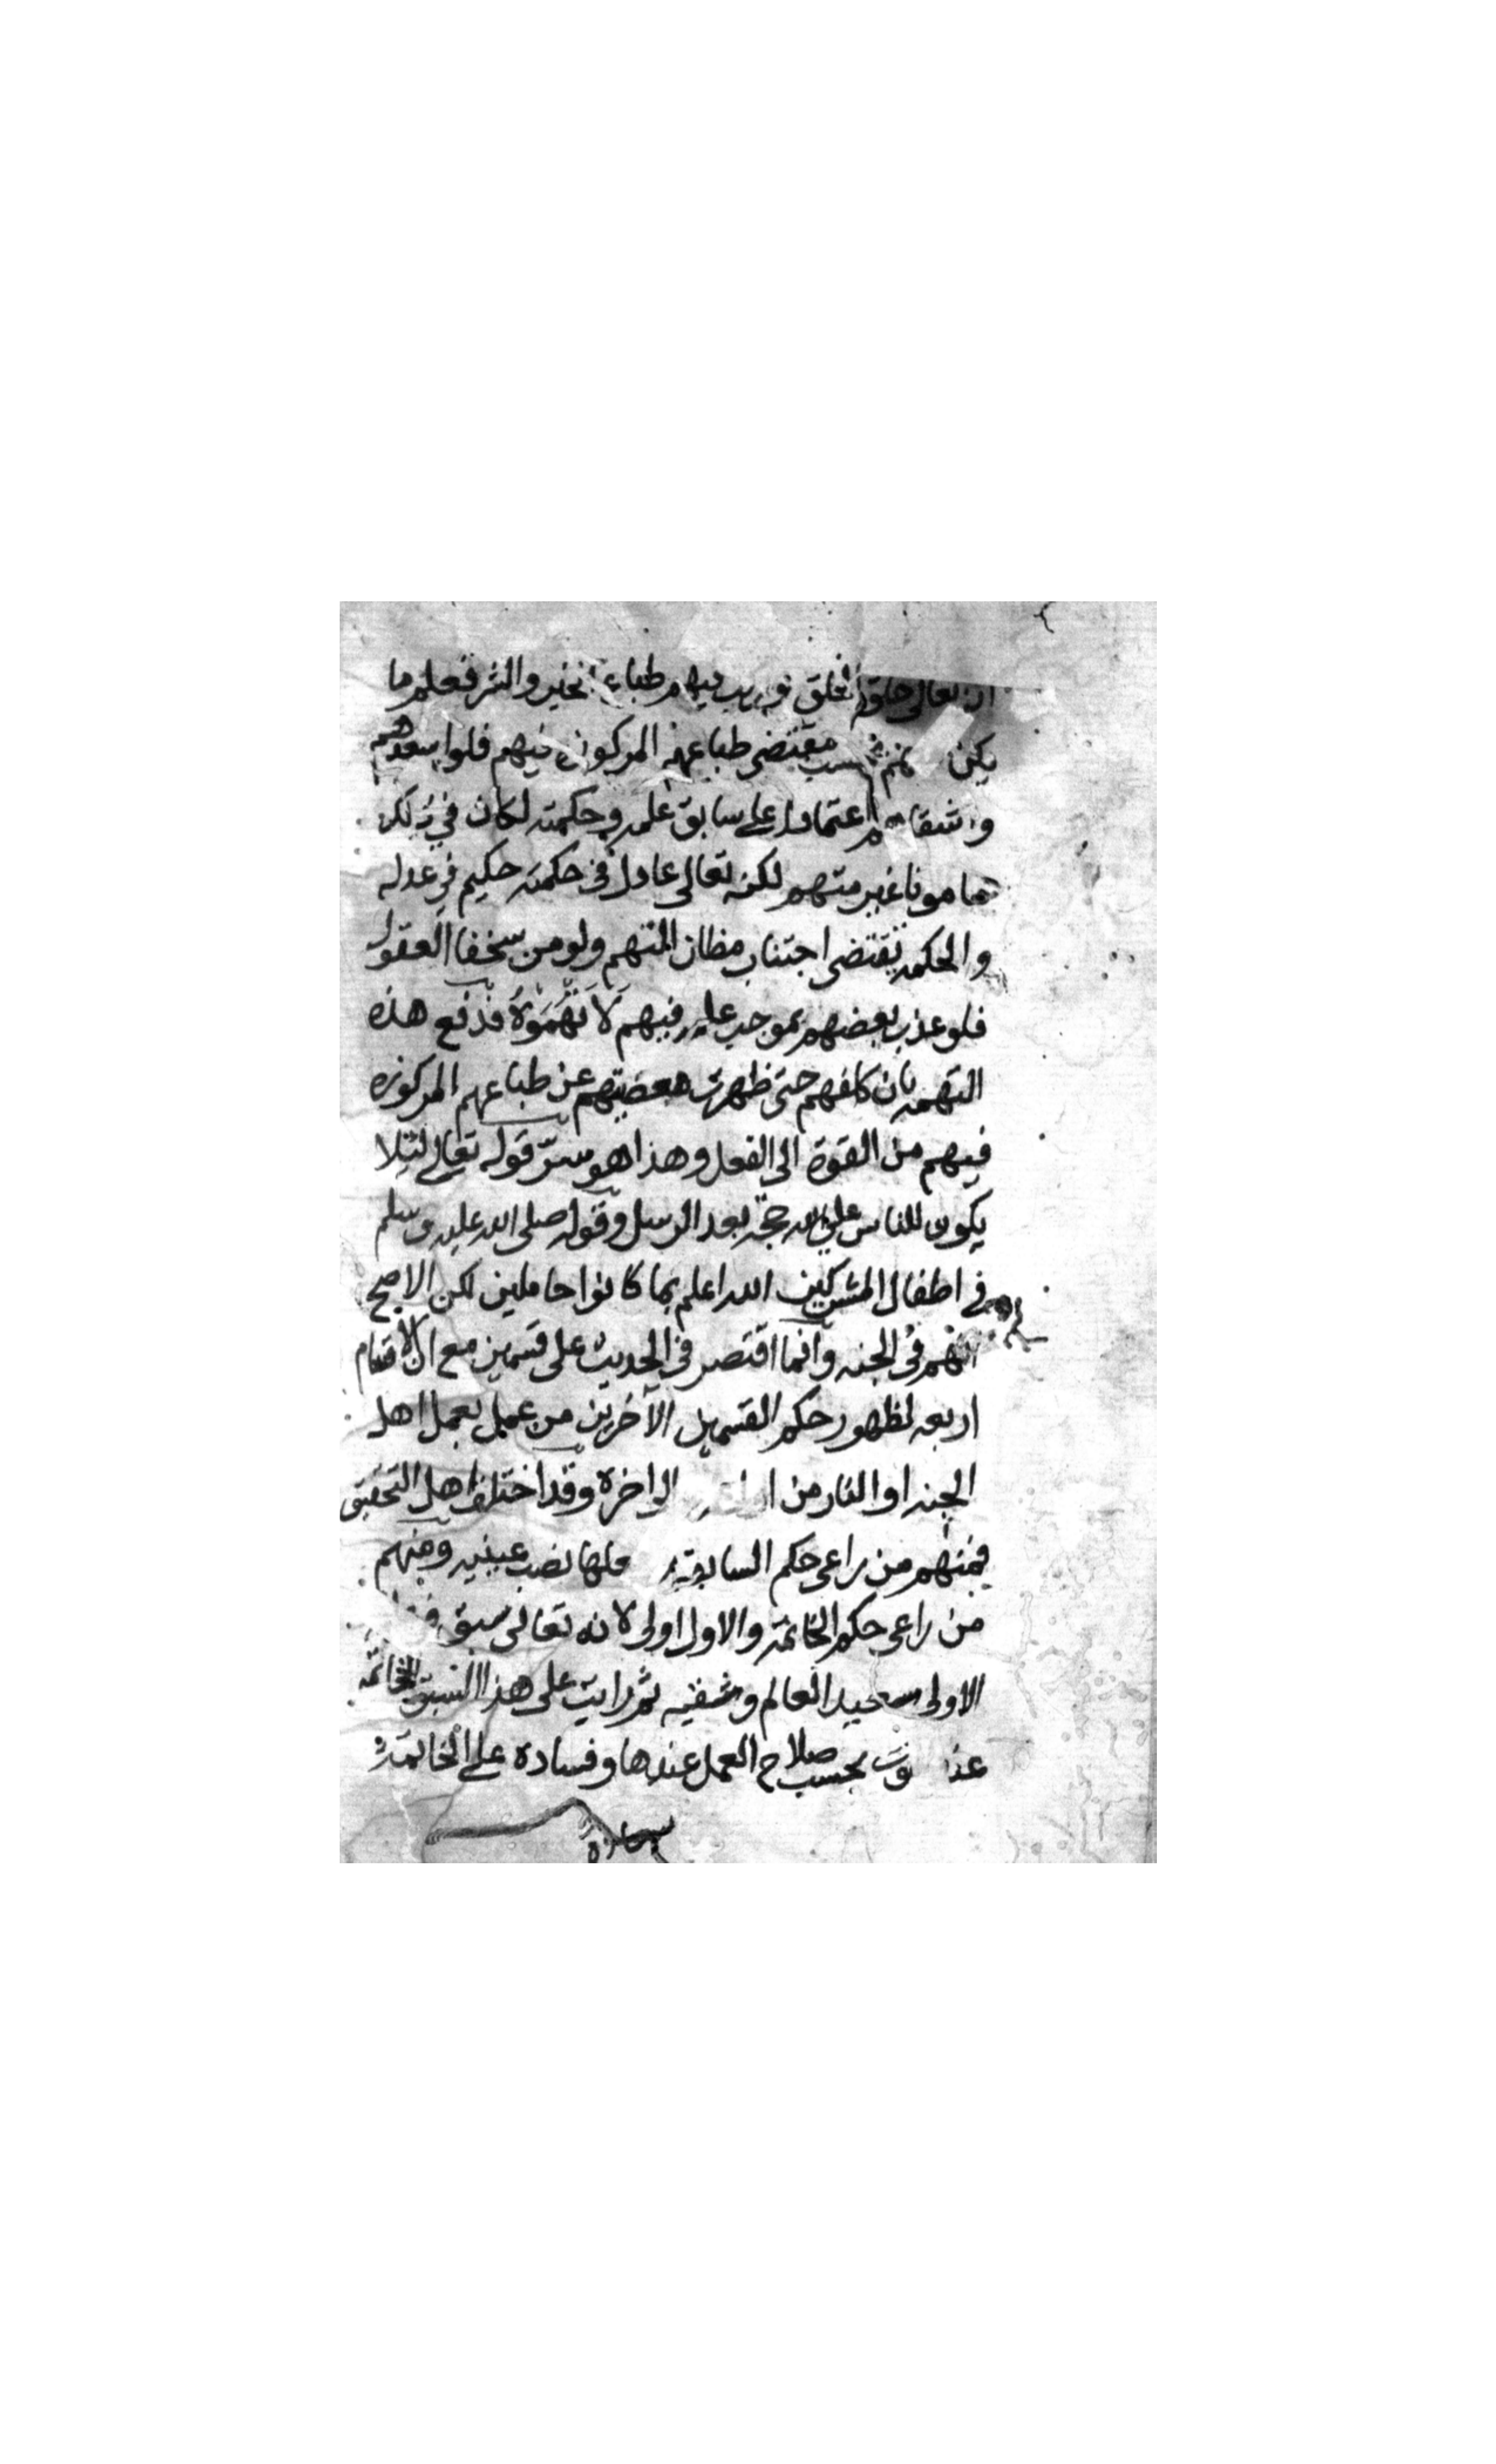 ان تعالى خلق الخلق فيهم طباع الخير والشر فعلم ما
يكن منهم بحسب مقتضى طباعهم المركوزه فيهم فلو اسعدهم
واشقاهم اعتمادا على سابق علمه وحكمته لكان في ذلك
مامونا غير متهم لكنه تعالى عادل في حكمته حكيم في عدله
والحكمه تقتضى اجتناب مظان التهم ولو من سخفا العقول
فلو عذب بعضهم بموجب علمه فيهم لاتهموه فدفع هذه
التهمه بان كلفهم حتى ظهرت معصيتهم عن طباعهم المركوزه
فيهم من القوة الى الفعل وهذا هو سر قوله تعالى لئلا
يكون للناس على الله حجة بعد الرسل وقوله صلى الله عليه وسلم
في اطفال المشركين الله اعلم بما كانوا عاملين لكن الاصح
انهم في الجنه وانما اقتصر في الحديث على قسمين مع ان الاقسام
اربعه لظهور حكم القسمين الآخرين من عمل بعمل اهل
الجنه او النار من الى اخرة وقد اختلف اهل التحقيق
فمنهم من راعى حكم السابقة وجعلها نصب عينيه ومنهم
من راعى حكم الخاتمة والاول اولى لانه تعالى سبق في
الاولى سعيد العالم وشقيه ثم رتبت على هذا السبق الخاتمه
عند الموت بحسب صلاح العمل عندها وفساده على الخاتمة
سعادة